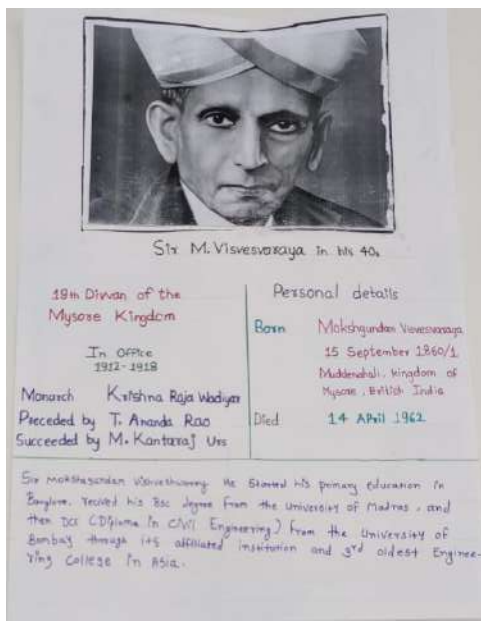 Sir M. Visvesvaraya in his 40s
19th Divvan of the
Mysore Kingdom
In Office
1912-1918
Monarch Krishna Raja Wadiyar
Preceded by T. Ananda Rao
Succeeded by M. Kantaraj Urs
Personal details
Born Mokshgundan Visvesvaraya
15 September 1860/1
Muddenahali, kingdom of
Mysore, British India
Died 14 April 1962
Sir Mokshagundan He Started his primary education in
Banglore, recived his Bsc degree from the University of Madras, and
then DCE (Diploma in Civil Engineering) from the University of
Bombay through its affiliated institution and 3rd oldest Enginee-
ring College in Asia.